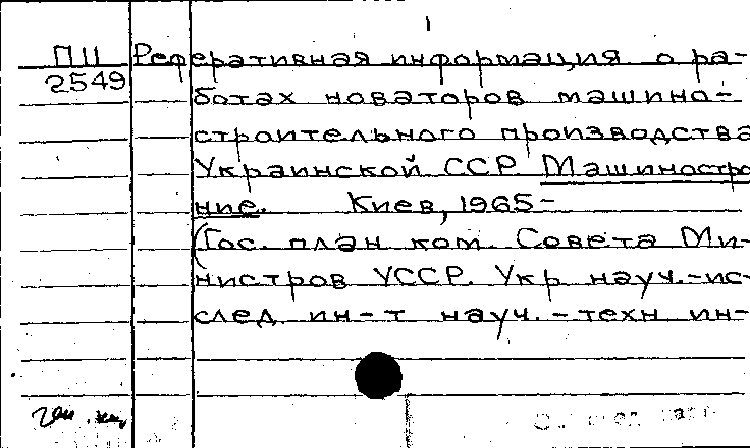 П II Реферативная информация о ра-
2549
ботах новаторов машино-
строительного производства
Украинской ССР. Машиностро
ние. Киев, 1965-
(Гос. план ком. Совета Ми-
нистров УССР. Укр науч.-ис-
след. ин-т науч.-техн ин-